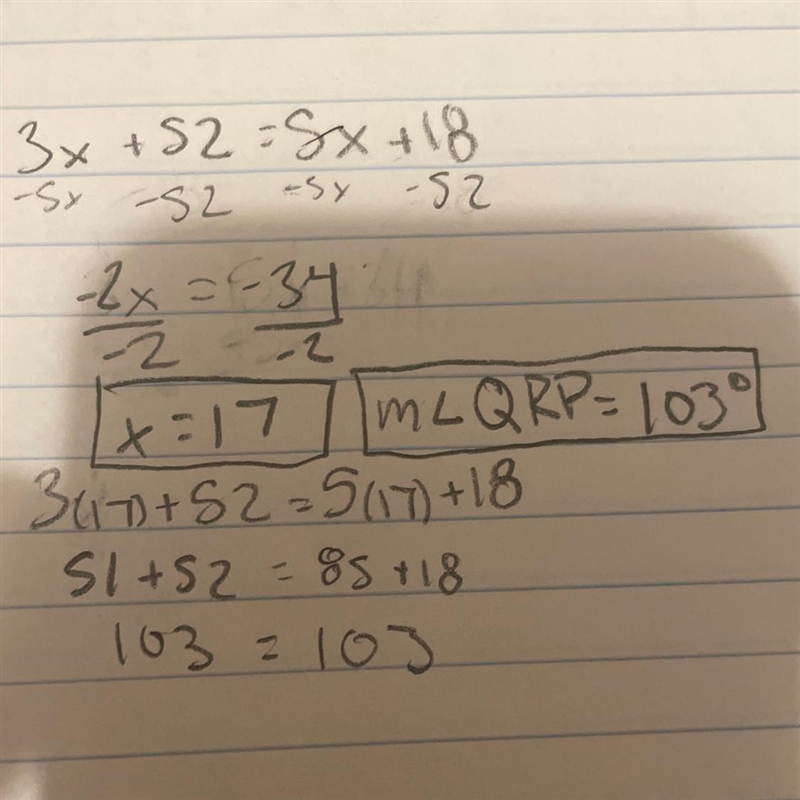 3x + 52 = 5x + 18
-5x -52 -5x -52
-2x = -34
-2 -2
x = 17 m∠QRP = 103°
3(17) + 52 = 5(17) + 18
51 + 52 = 85 + 18
103 = 103